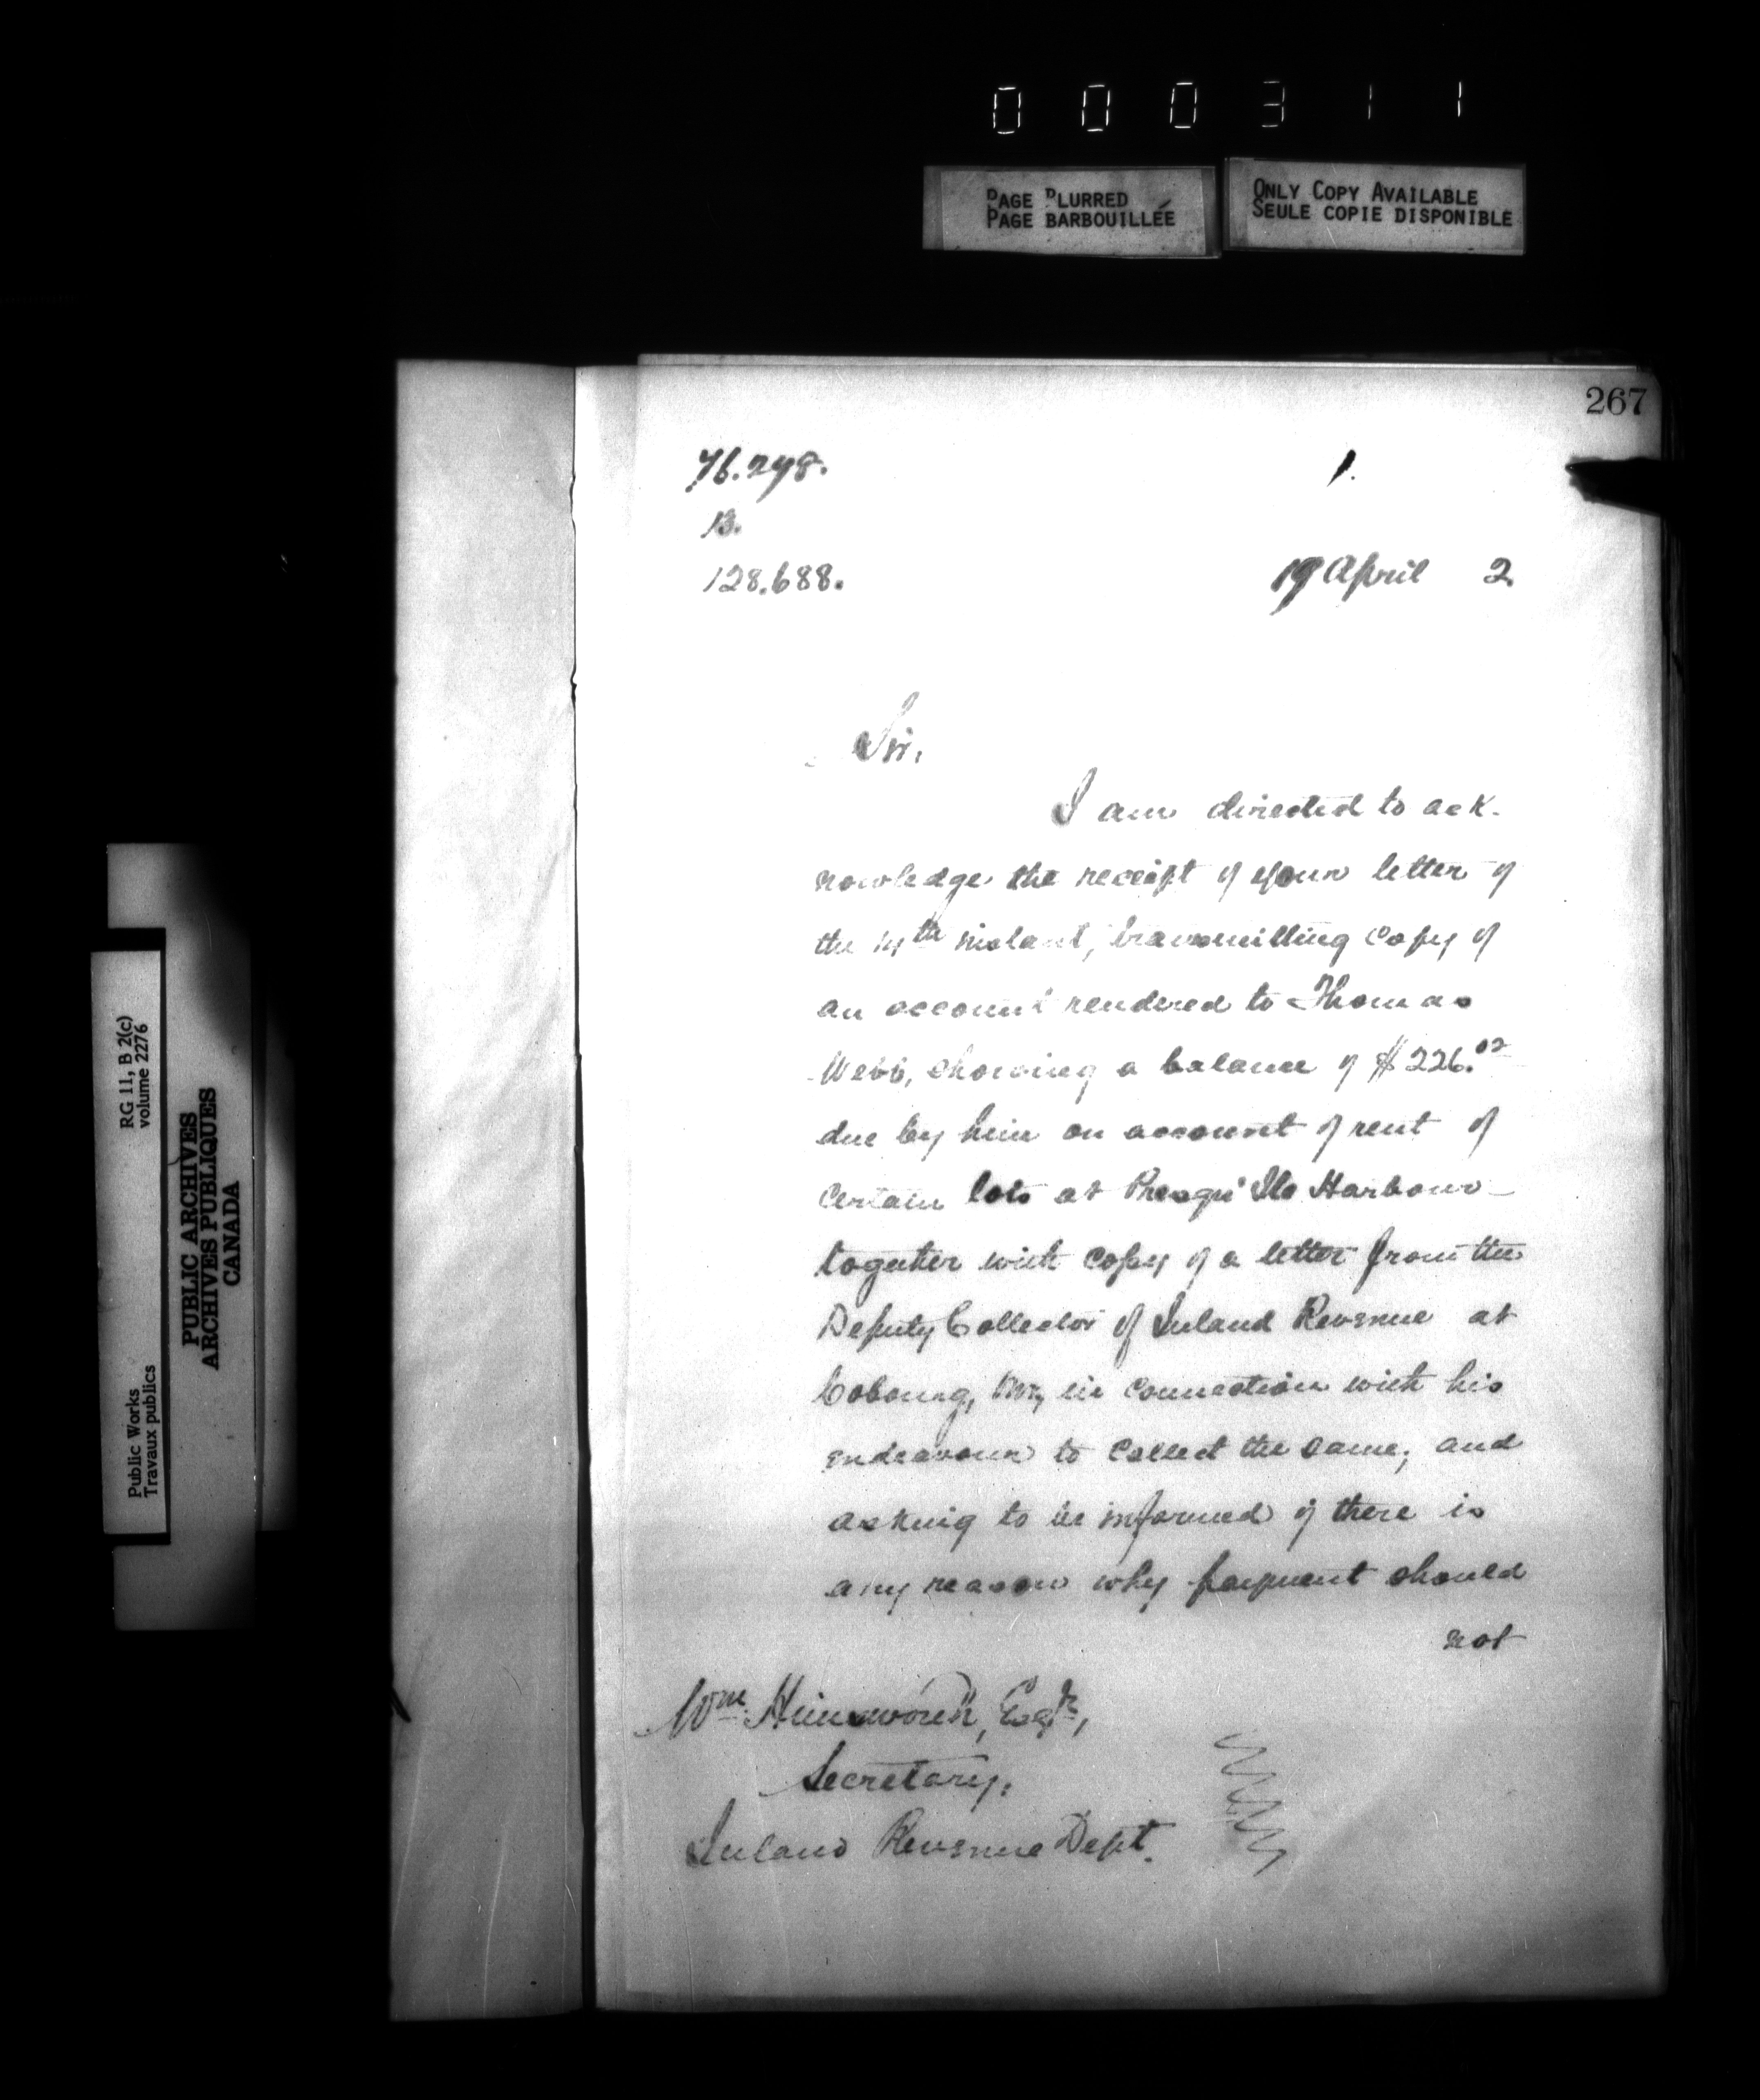 000311
PAGE BLURRED
PAGE BARBOUILLÉE
ONLY COPY AVAILABLE
SEULE COPIE DISPONIBLE
267
76.298.
1.
B.
128.688.
19 April 2.
Sir,
I am directed to ack-
nowledge the receipt of your letter of
the 14th instant, transmitting copy of
an account rendered to Thomas
Webb, showing a balance of $226.02
due by him on account of rent of
certain lots at Presqu'Ile Harbour
together with copy of a letter from the
Deputy Collector of Inland Revenue at
Cobourg, in connection with his
endeavour to collect the same; and
asking to be informed if there is
any reason why payment should
not
Wm Himsworth, Esqr,
Secretary,
Inland Revenue Dept.
Public Works
Travaux publics
RG 11, B 2(c)
volume 2276
PUBLIC ARCHIVES
ARCHIVES PUBLIQUES
CANADA